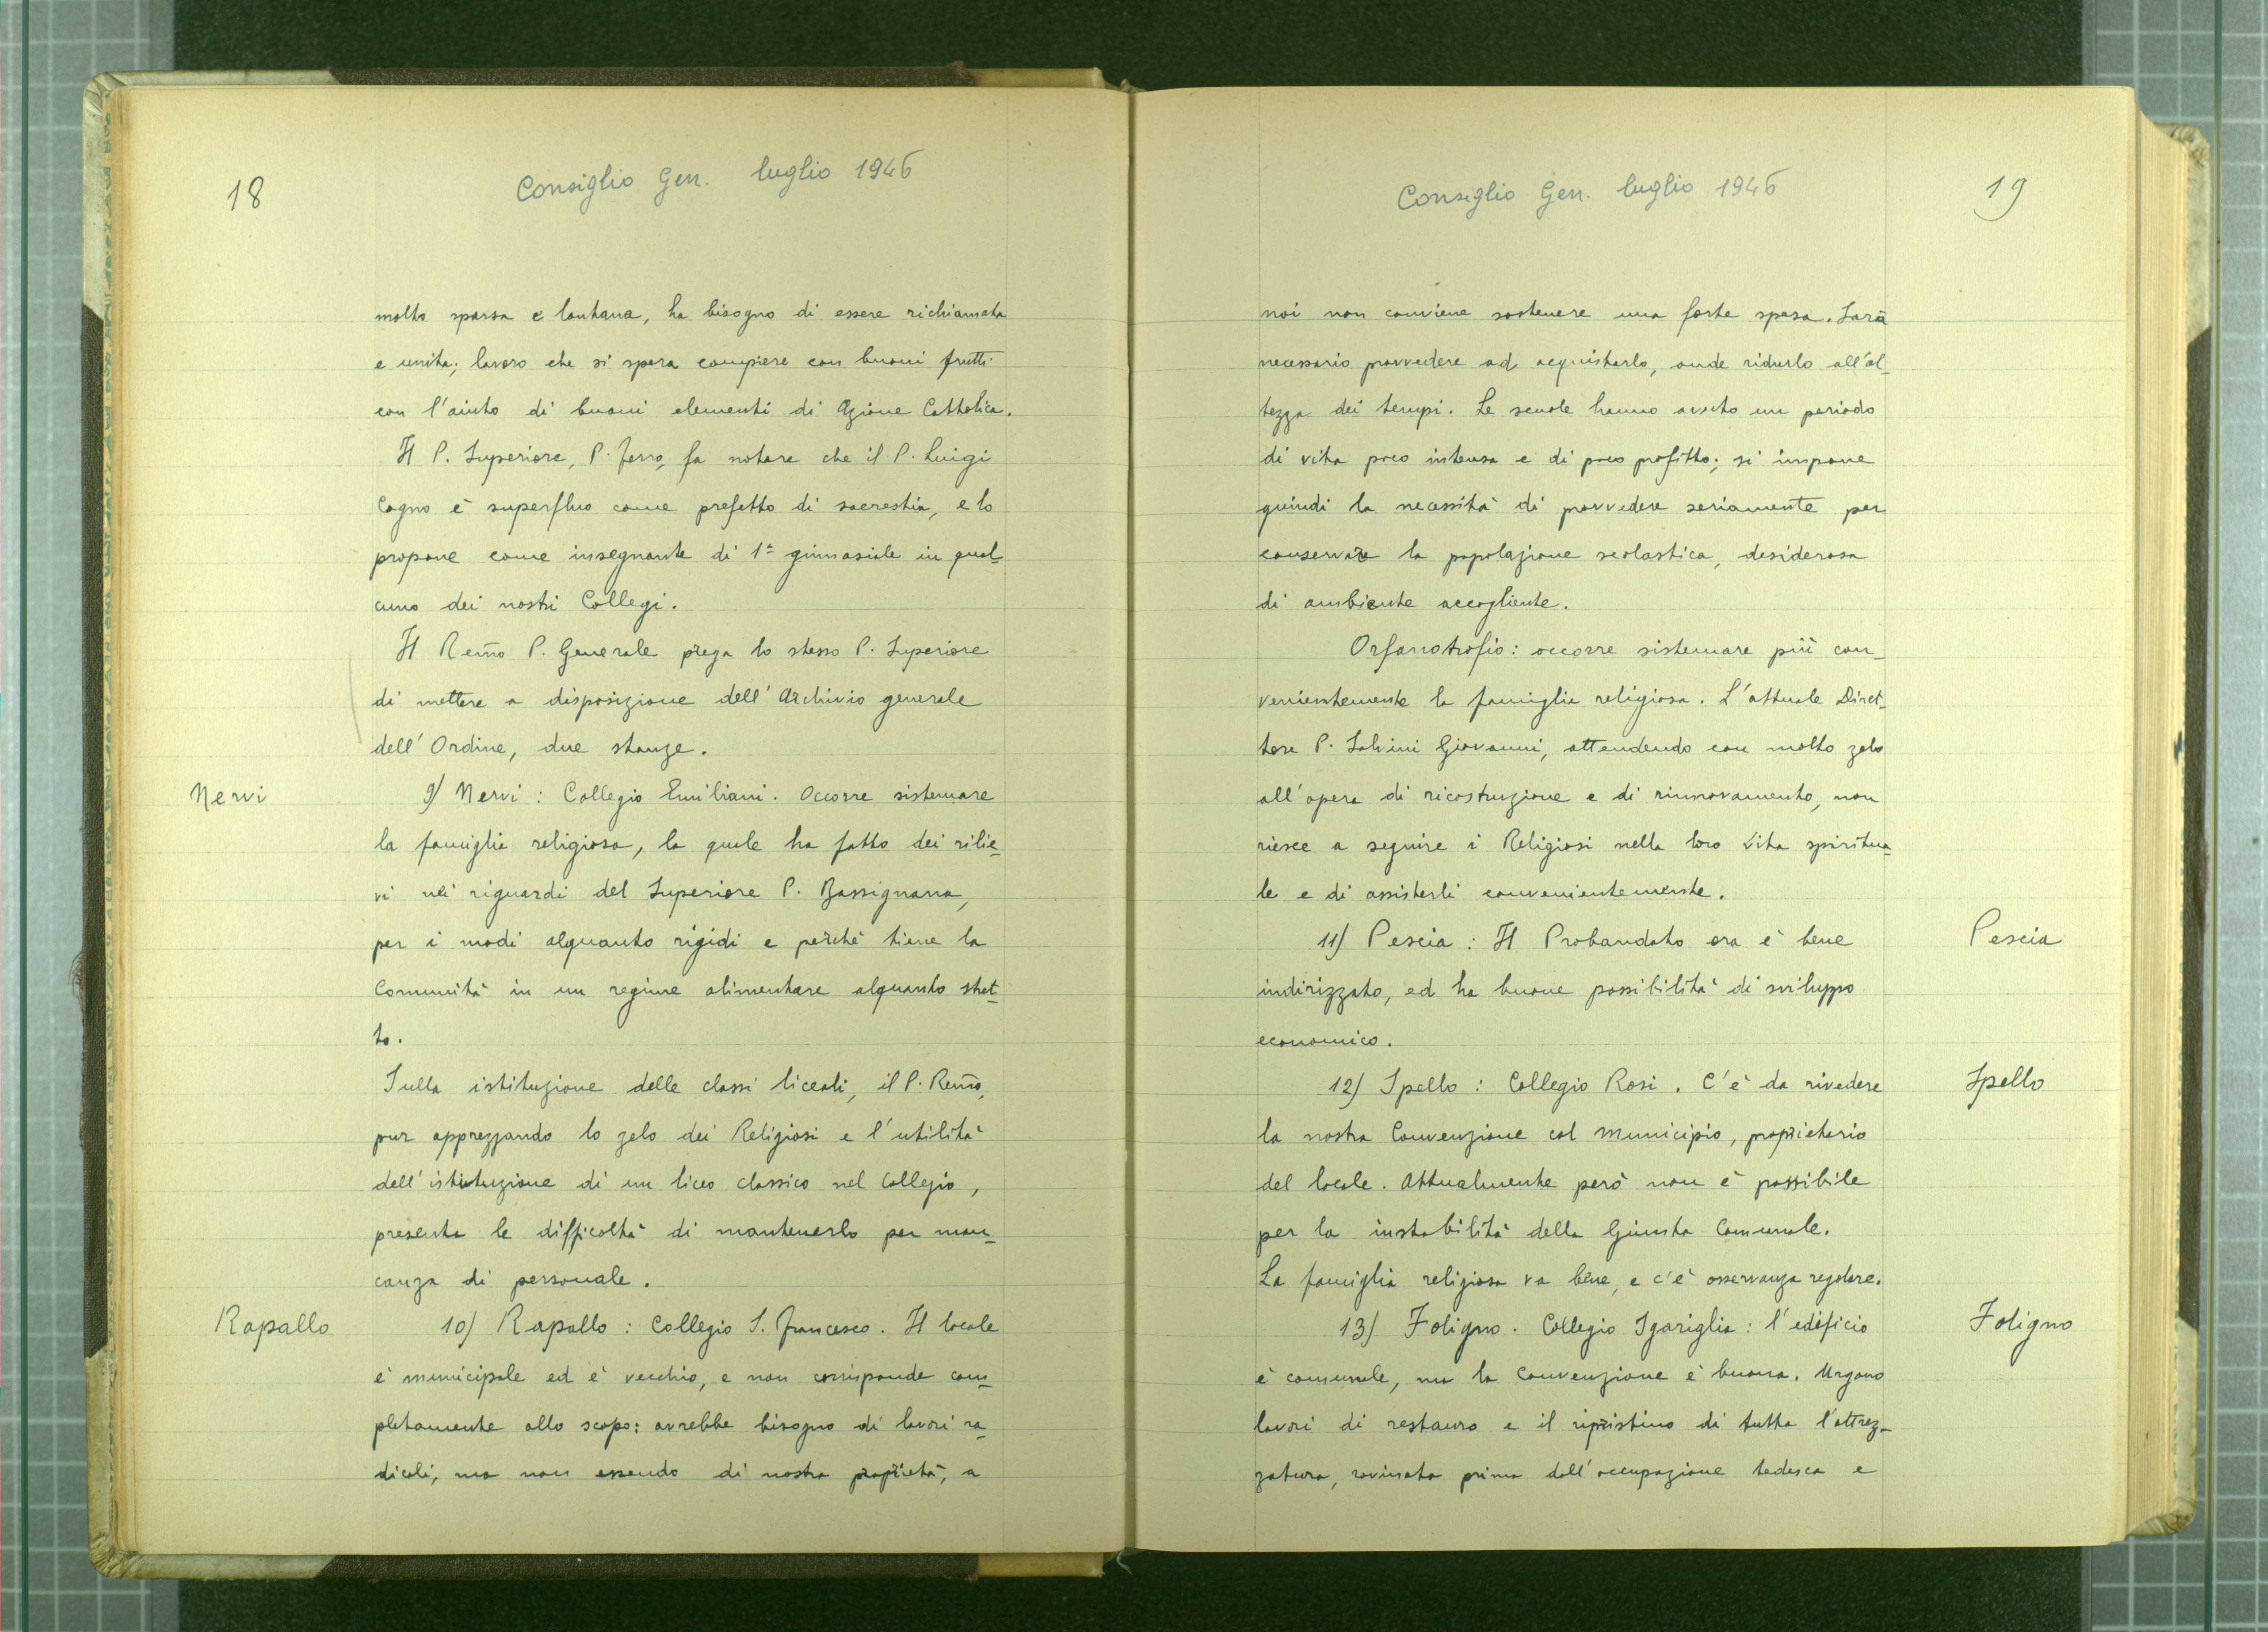 18
Consiglio Gen. luglio 1946
molto sparsa e lontana, ha bisogno di essere richiamata
e unita; lavoro che si spera compiere con buoni frutti
con l'aiuto di buoni elementi di Azione Cattolica.
Il P. Superiore, P. Ferro, fa notare che il P. Luigi
Cogno è superfluo come prefetto di sacrestia, e lo
propone come insegnante di 1ª ginnasiale in qual-
cuno dei nostri Collegi.
Il Rem̃o P. Generale prega lo stesso P. Superiore
di mettere a disposizione dell'Archivio generale
dell'Ordine, due stanze.
Nervi
9) Nervi: Collegio Emiliani. Occorre sistemare
la famiglia religiosa, la quale ha fatto dei rilie-
vi nei riguardi del Superiore P. Bassignana,
per i modi alquanto rigidi e perchè tiene la
Comunità in un regime alimentare alquanto stret-
to.
Sulla istituzione delle classi liceali, il P. Rem̃o,
pur apprezzando lo zelo dei Religiosi e l'utilità
dell'istituzione di un liceo classico nel Collegio,
presenta le difficoltà di mantenerlo per man-
canza di personale.
Rapallo
10) Rapallo: Collegio S. Francesco. Il locale
è municipale ed è vecchio, e non corrisponde com-
pletamente allo scopo: avrebbe bisogno di lavori ra-
dicali, ma non essendo di nostra proprietà, a
Consiglio Gen. luglio 1946
19
noi non conviene sostenere una forte spesa. Sarà
necessario provvedere ad acquistarlo, onde ridurlo all'al-
tezza dei tempi. Le scuole hanno avuto un periodo
di vita poco intensa e di poco profitto; si impone
quindi la necessità di provvedere seriamente per
conservare la popolazione scolastica, desiderosa
di ambiente accogliente.
Orfanotrofio: occorre sistemare più con-
venientemente la famiglia religiosa. L'attuale Diret-
tore P. Salvini Giovanni, attendendo con molto zelo
all'opera di ricostruzione e di rinnovamento, non
riesce a seguire i Religiosi nella loro vita spiritua-
le e di assisterli convenientemente.
11) Pescia: Il Probandato ora è bene
Pescia
indirizzato, ed ha buone possibilità di sviluppo
economico.
12) Spello: Collegio Rosi. C'è da rivedere
Spello
la nostra Convenzione col Municipio, proprietario
del locale. Attualmente però non è possibile
per la instabilità della Giunta Comunale.
La famiglia religiosa va bene, e c'è osservanza regolare.
13) Foligno. Collegio Sgariglia: l'edificio
Foligno
è comunale, ma la Convenzione è buona. Urgono
lavori di restauro e il ripristino di tutta l'attrez-
zatura, rovinata prima dall'occupazione tedesca e